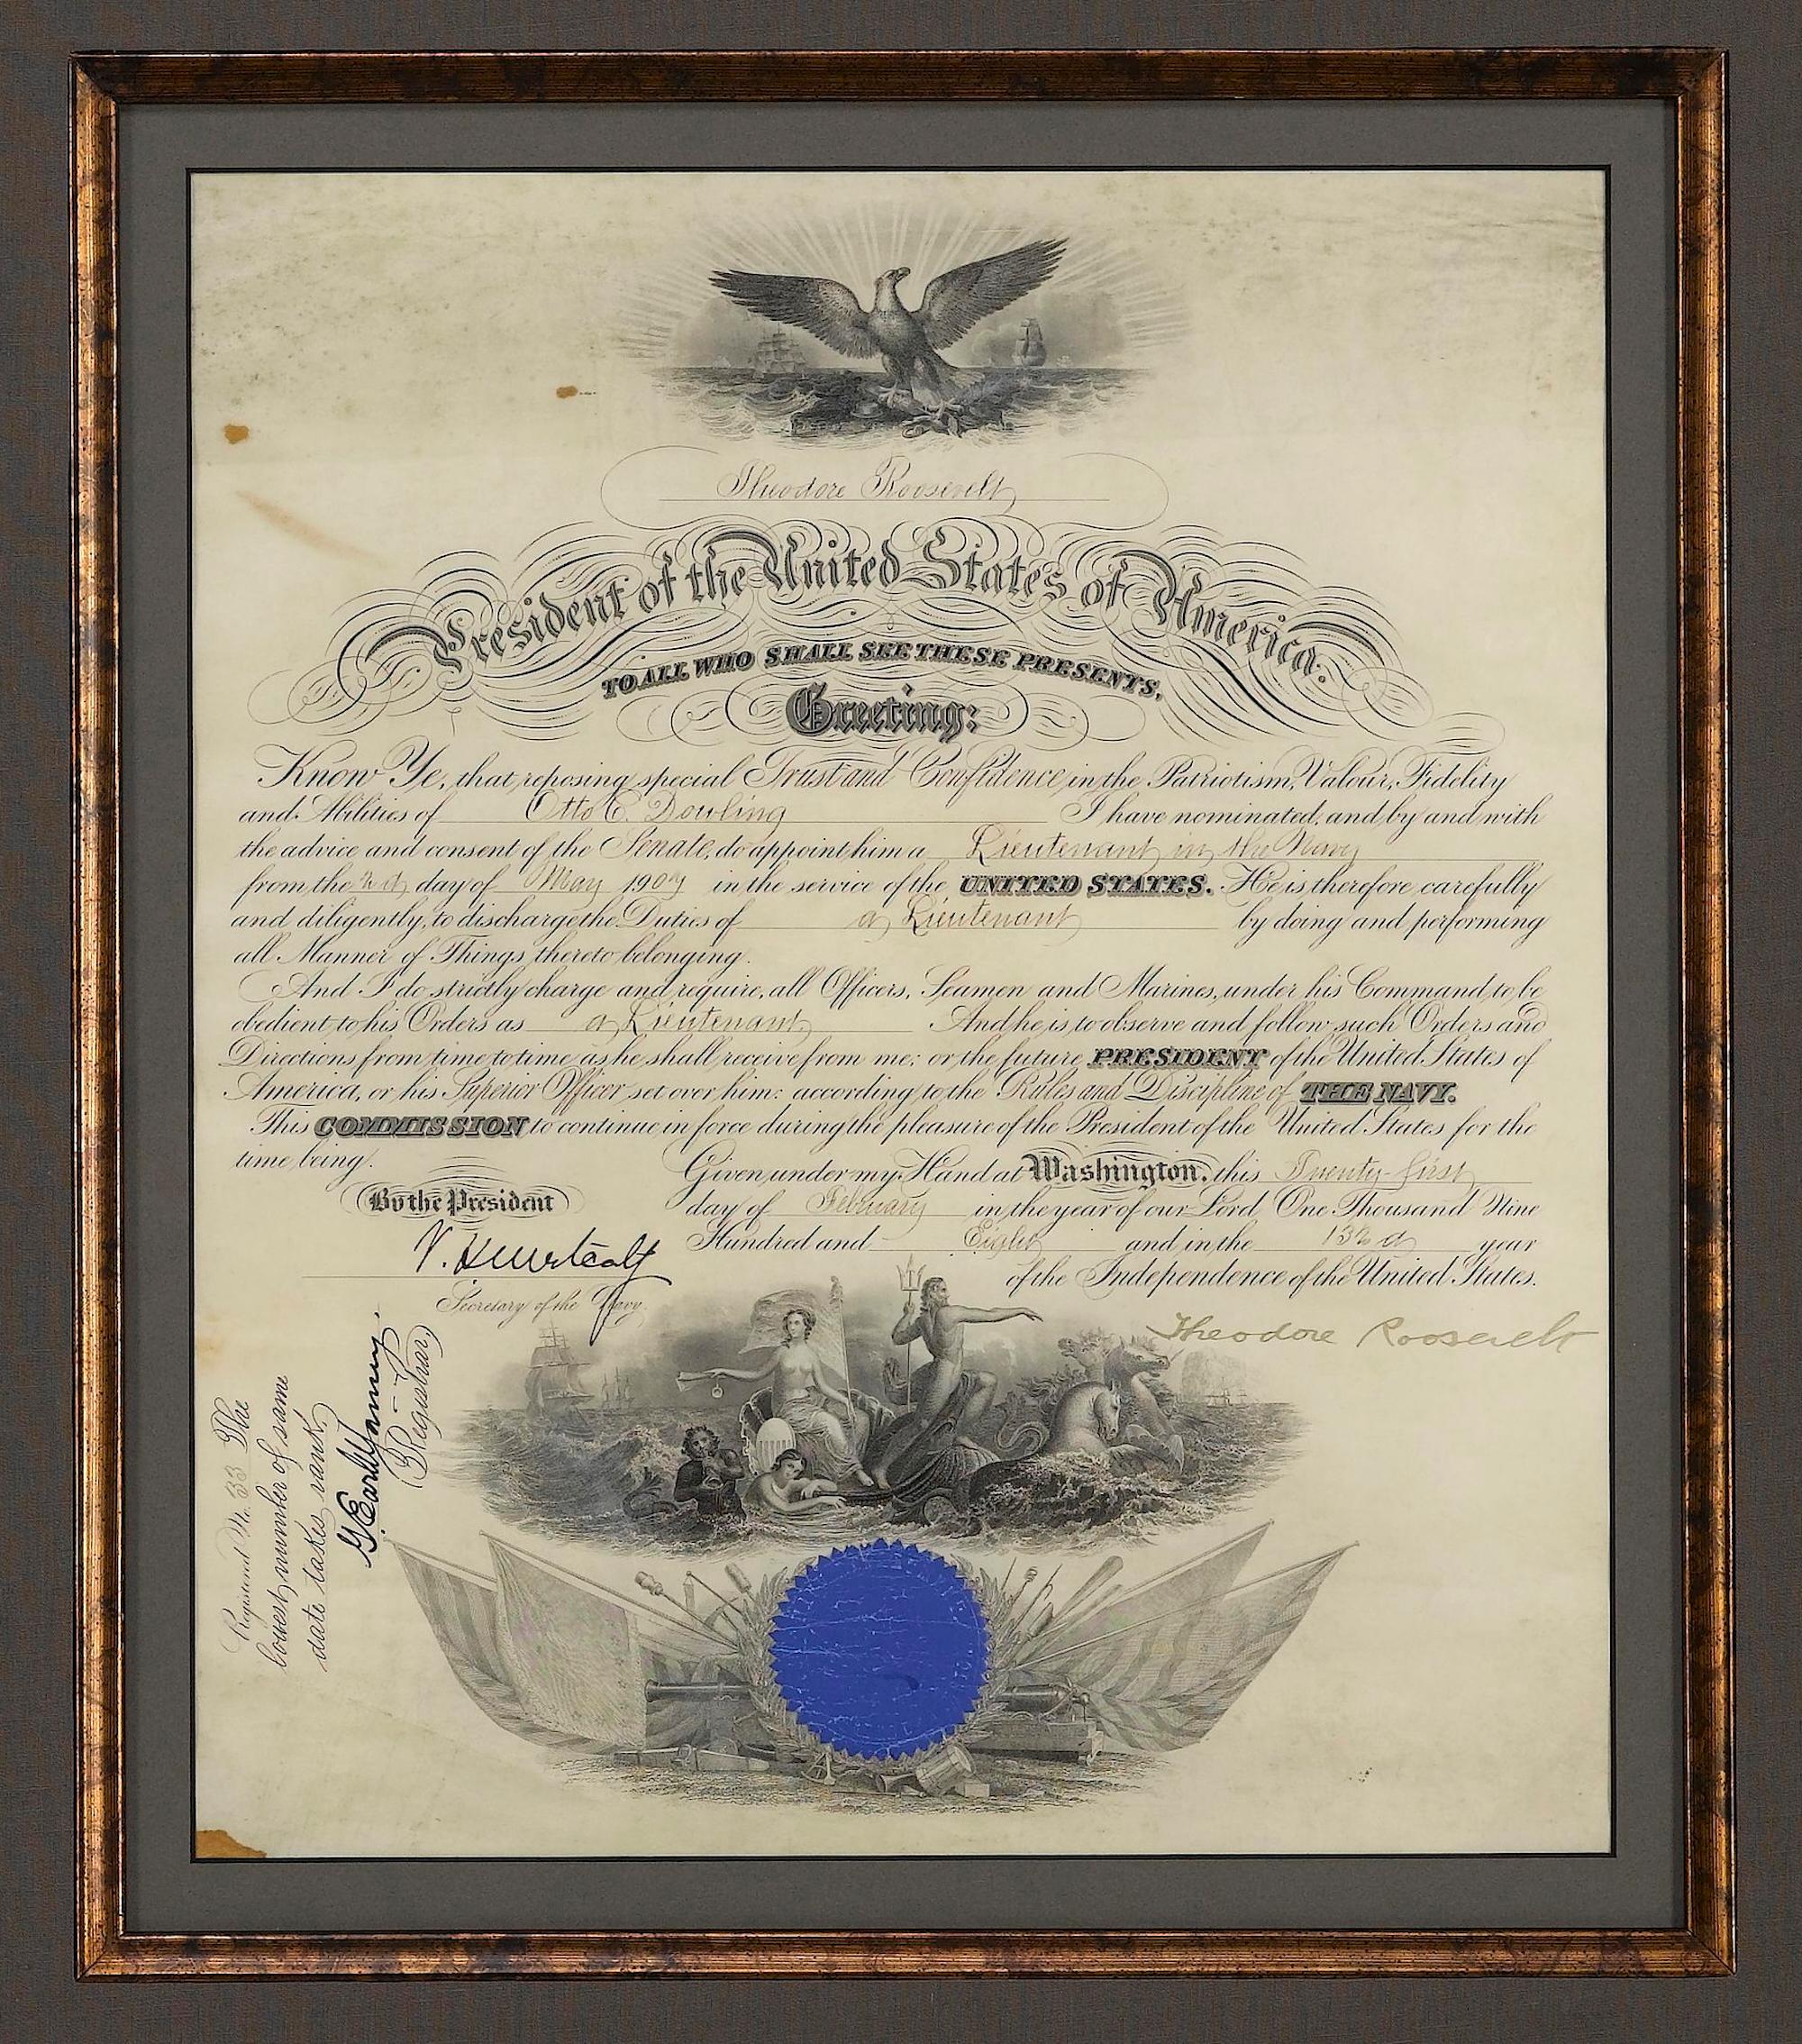 Theodore Roosevelt
President of the United States of America.
TO ALL WHO SHALL SEE THESE PRESENTS,
Greeting:
Know Ye, that reposing special Trust and Confidence in the Patriotism, Valour, Fidelity
and Abilities of Otto C. Dowling I have nominated, and by and with
the advice and consent of the Senate, do appoint him a Lieutenant in the Navy
from the 2d day of May 1907 in the service of the UNITED STATES. He is therefore carefully
and diligently, to discharge the Duties of a Lieutenant by doing and performing
all Manner of Things thereto belonging.
And I do strictly charge and require, all Officers, Seamen and Marines, under his Command to be
obedient to his Orders as a Lieutenant And he is to observe and follow such Orders and
Directions from time to time as he shall receive from me; or the future PRESIDENT of the United States of
America, or his Superior Officer set over him: according to the Rules and Discipline of THE NAVY.
This COMMISSION to continue in force during the pleasure of the President of the United States for the
time being.
Given under my Hand at Washington, this Twenty-first
day of February in the year of our Lord One Thousand Nine
Hundred and Eight and in the 132d year
of the Independence of the United States.
By the President
V. H. Metcalf
Secretary of the Navy.
Theodore Roosevelt
Registered No. 33 The
lowest number of same
date takes rank
(Registrar)